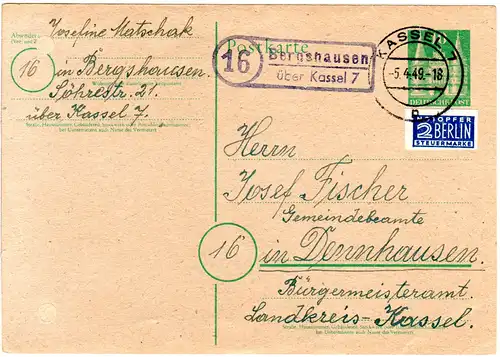 Absender:
Josefine Matschak
16
in Bergshausen.
Söhrestr. 21.
über Kassel 7.
Straße, Hausnummer, Gebäudeteil, Stockwerk oder Postschließfachnummer,
bei Untermietern auch Name des Vermieters
Postkarte
16 Bergshausen
über Kassel 7
KASSEL 7
-5.4.49.-18
DEUTSCHE POST
NOTOPFER
2 BERLIN
STEUERMARKE
Herrn
Josef Fischer
Gemeindebeamte
16
in Dennhausen.
Bürgermeisteramt.
Landkreis-Kassel.
Straße, Hausnummer, Gebäudeteil, Stockwerk oder Postschließfachnummer,
bei Untermietern auch Name des Vermieters